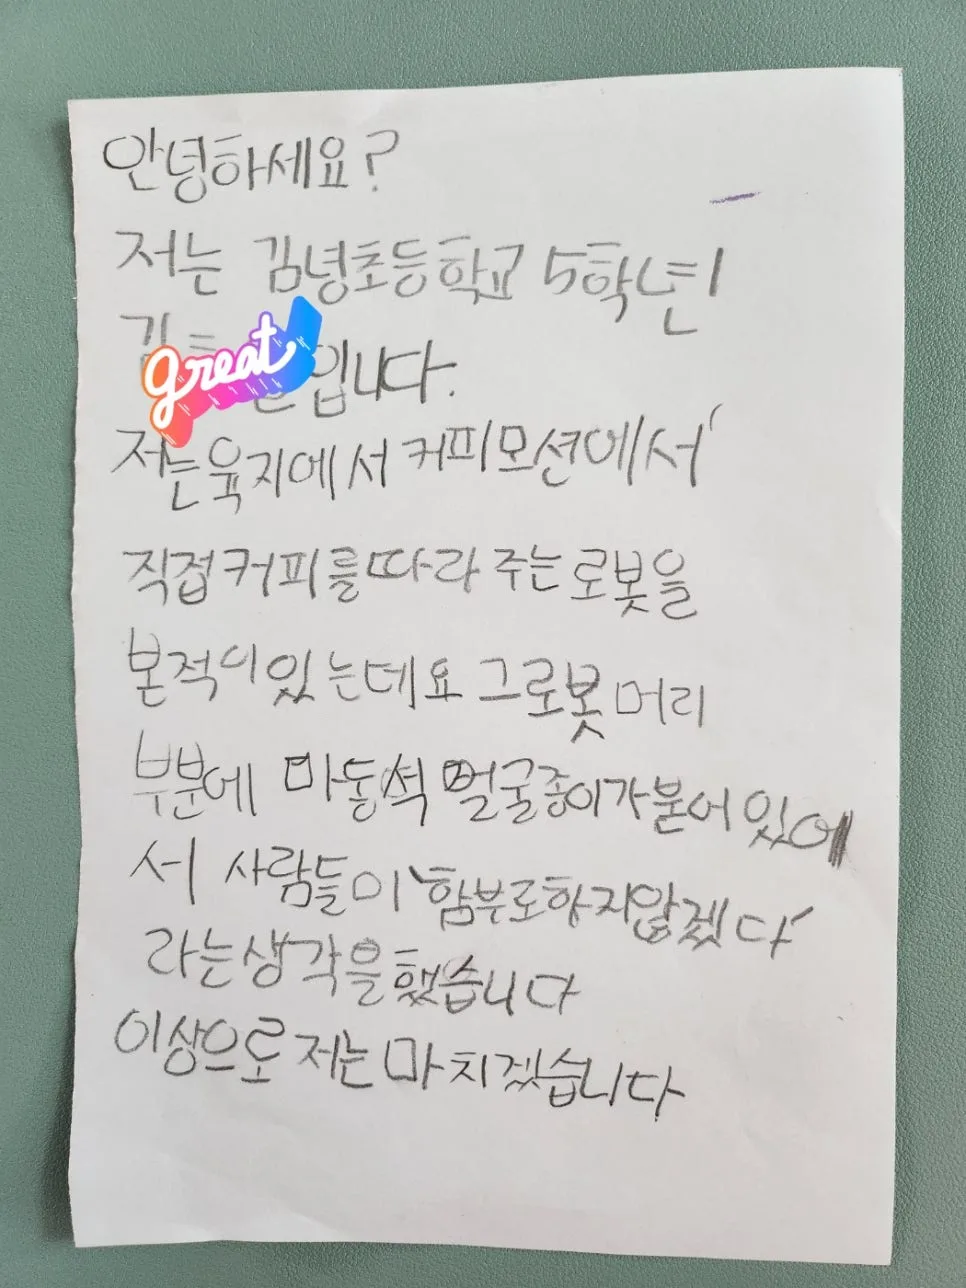 안녕하세요?
저는 김녕초등학교 5학년
great 입니다.
저는 육지에서 커피모션에서
직접 커피를 따라 주는 로봇을
본적이 있는데요 그로봇 머리
부분에 마동석 얼굴종이가 붙어 있어
서 사람들이 '함부로하지않겠다'
라는생각을 했습니다
이상으로 저는 마치겠습니다